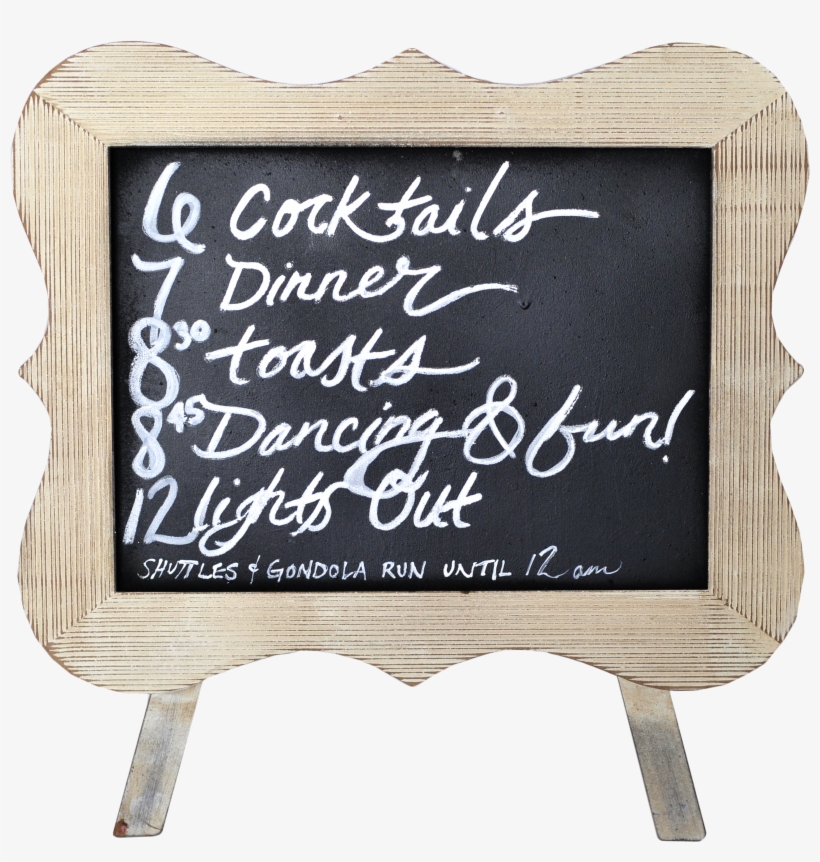 6 Cocktails
7 Dinner
8 30 toasts
8 45 Dancing & fun!
12 lights Out
SHUTTLES & GONDOLA RUN UNTIL 12 am